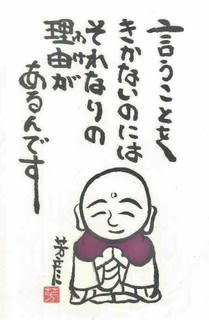 言うことを
きかないのには
それなりの
理由が
わけ
あるんです